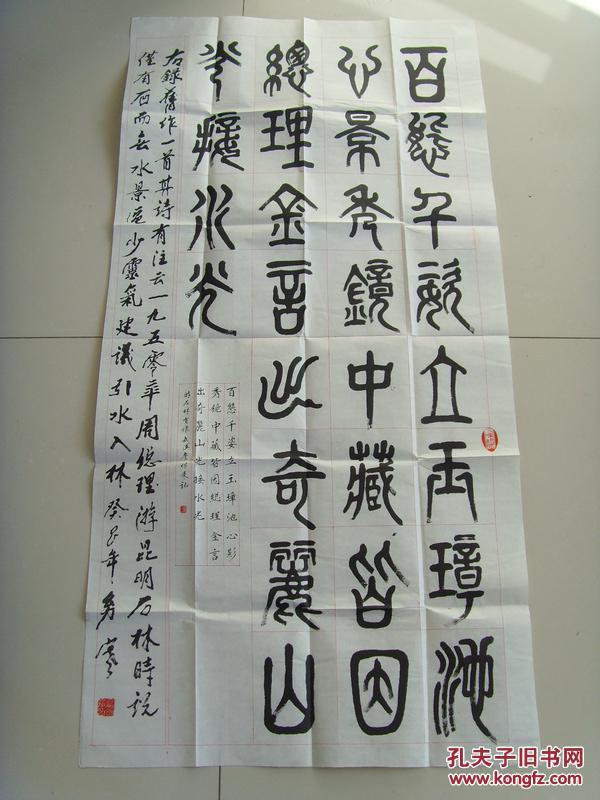 百態千姿立玉璋池
心景秀鏡中藏皆因
總理金言出奇麗山
光接水光
百態千姿立玉璋池心影
秀鏡中藏皆因總理金言
出奇麗山光接水光
游石林有懷
右録舊作一首其詩有注云一九五零年周總理游昆明石林時説
僅有石而無水景區少靈氣建議引水入林癸巳年
孔夫子旧书网
www.kongfz.com